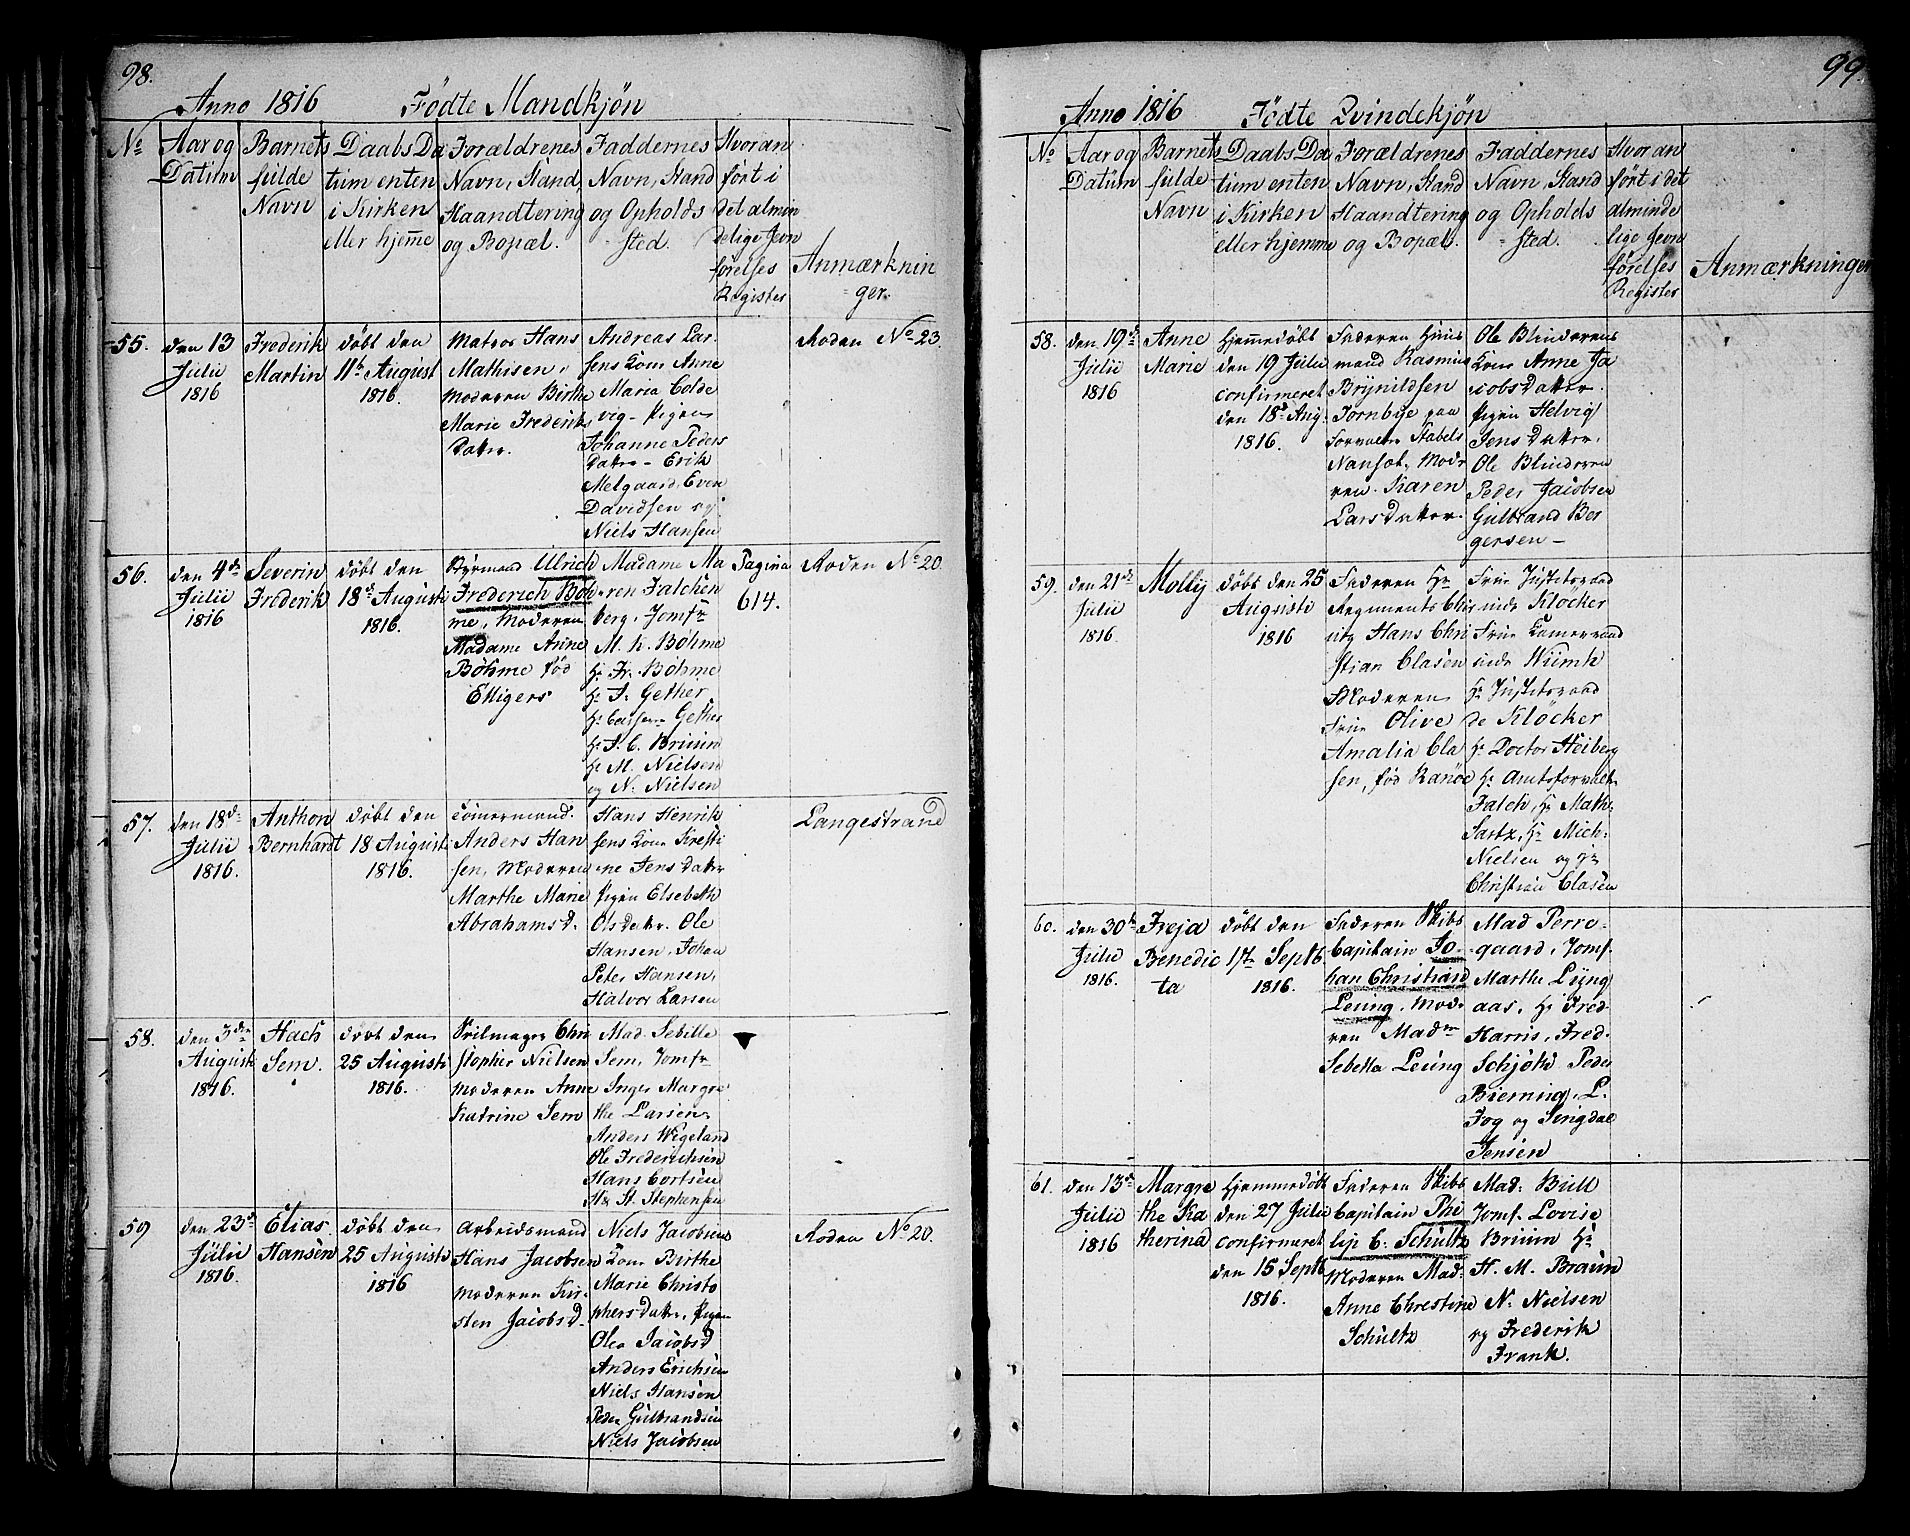 98.
Anno 1816 Födte Mandkjön
No
Aar og
Datum
Barnets
fulde
Navn
Daabs Da
tum enten
i Kirken
eller hjem̄e
Forældrenes
Navn, Stand,
Haandtering
og Bopæl.
Faddernes
Navn, Stand
og Opholds
sted.
Hvor an
fört i
det almin
delige Jevn
förelses
Register
Anmærknin
ger.
55.
den 13
Julii
1816
Frederik
Martin
döbt den
11te August
1816.
Matros Hans
Mathisen,
Moderen Birthe
Marie Frederiks
Datter.
Andreas Lar
sens Kone Anne
Maria Colde
vig - Pigen
Johanne Peders
Datter - Erik
Melgaard, Even
Davidsen og
Niels Hansen
Roden No 23.
56.
den 4de
Julii
1816
Severin
Frederik
döbt den
18de August
1816.
Styrmand Ulrich
Frederich Böh
me, Moderen
Madame Anne
Böhme föd
Ettigers
Madame Ma
ren Falchen
berg, Jomfr
M. K. Böhme
Hr Fr. Böhme
Hr J. Gether
Gether
Hr J. C. Bruun
Hr M. Nielsen
og N. Nielsen
Pagina
614.
Roden No 20.
57.
den 18de
Julii
1816.
Anthon
Bernhardt
döbt den
18 August
1816.
Tömermand
Anders Han
sen, Moderen
Marthe Marie
Abrahamsd.
Hans Henrik
sens Kone Kirsti
ne Jens Datter
Pigen Elsebeth
Olsdatr. Ole
Hansen, Johan
Peter Hansen,
Halvor Larsen
Langestrand
58.
den 3die
August
1816.
Hach
Sem.
döbt den
25 Augusti
1816.
Seilmager Chri
stopher Nielsen
Moderen Anne
Katrine Sem
Mad. Sebille
Sem, Jomfr
Inger Margre
the Larsen,
Anders Wigeland
Ole Frederichsen
Hans Cortsen
St. Stephansen
59
den 23de
Julii
1816.
Elias
Hansen
döbt den
25 Augusti
1816
Arbeidsmand
Hans Jacobsen
Moderen Kir
sten Jacobsd.
Niels Jacobsens
Kone Birthe
Marie Christo
phersdatr. Pigen
Olea Jacobsd
Anders Erichsen
Niels Hansen
Peder Gulbrandsen
Niels Jacobsen
Roden No 20.
99.
Anno 1816 Födte Qvindekjön
No
Aar og
Datum
Barnets
fulde
Navn
Daabs Da
tum enten
i Kirken
eller hjemme
Forældrenes
Navn, Stand
Haandtering
og Bopæl.
Faddernes
Navn, Stand
og Opholds
sted.
Hvor an
fört i det
alminde
lige Jevn
förelses
Register
Anmærkninger
58.
den 19de
Julii
1816
Anne
Marie
Hjemmedöbt
den 19 Julii
confirmeret
den 18de Aug.
1816.
Faderen Huus
mand Rasmus
Brynildsen
Tornbye paa
Forvalter Stabels
Nanset, Mode
ren Karen
Larsdatter.
Ole Blinderens
Kone Anne Ja
cobsdatter.
Pigen Helvig
Jensdatter,
Ole Blinderen
Peder Jacobsen
Gulbrand Ber
gersen -
59.
den 21de
Julii
1816.
Molly
döbt den 25
Augusti
1816
Faderen Hr
Regiments Chir
urg Hans Chri
stian Clasen
Moderen
Frue Olive
Amalia Cla
sen, föd Ranöe
Frue Justitsraad
inde Klöcker
Frue Camerraad
inde Wumk
Hr Justitsraad
de Klöcker
Hr Doctor Heiberg
Hr Amtsforvalt.
Falch, Hr Math.
Sartz, Hr Mich.
Nielsen og Hr
Christian Clasen
60.
den 30te
Julii
1816.
Freja
Benedic
ta
döbt den
1te Septb
1816.
Faderen Skibs
Capitain Jo
han Christian
Leüng, Mode
ren Madm
Sebella Leüng
Mad Perre
gaard, Jomf.
Marthe Lyng
aas, Hr Fred
Harris, Fred.
Schjöth Peder
Bierning, L.
Fog og Singdal
Jensen
61.
den 13de
Julii
1816
Margre
the Ka
therina
Hjemmedöbt
den 27 Julii
confirmeret
den 15 Septb
1816.
Faderen Skibs
Capitain Phi
lip C. Schultz
Moderen Mad.
Anne Chrestine
Schultz
Mad. Bull
Jomf. Lovise
Bruun Hr
H. M. Braün
N. Nielsen
og Frederik
Frank.